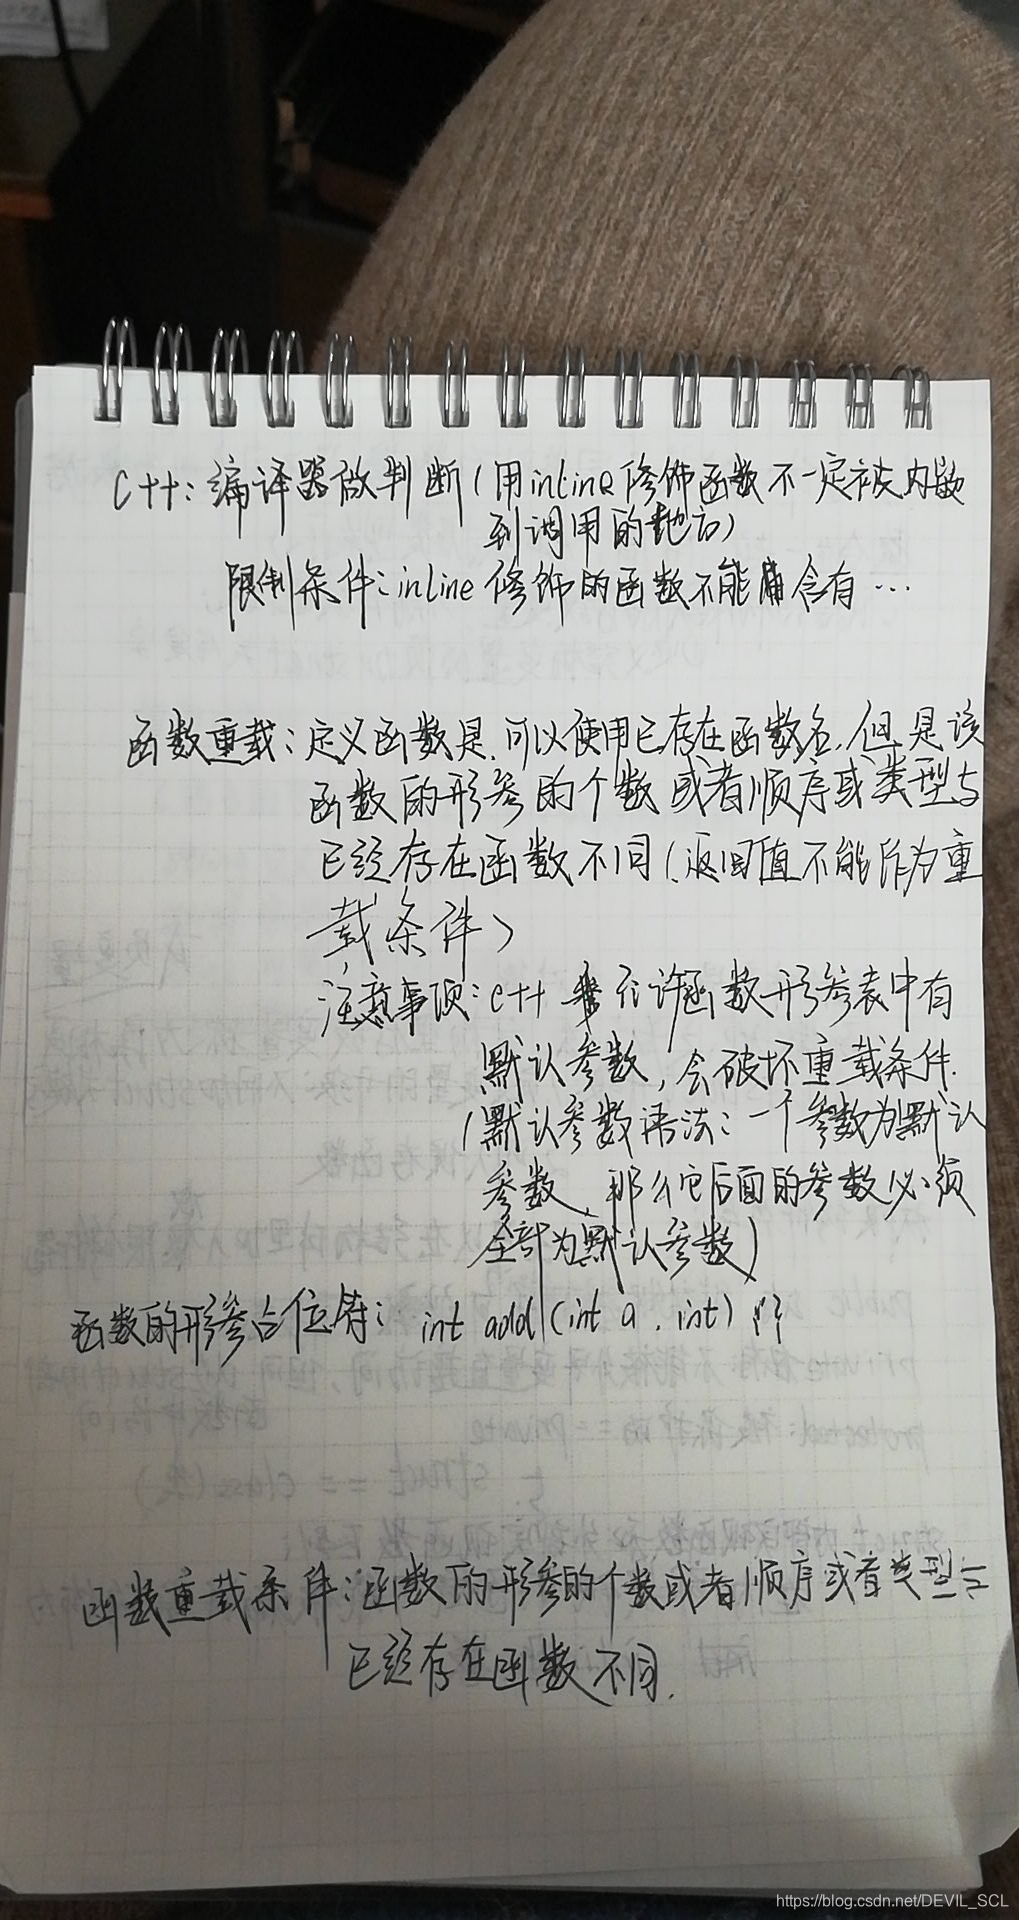 C++: 编译器做判断(用inline修饰函数不一定被内嵌
到调用的地方)
限制条件:inline修饰的函数不能含有…
函数重载:定义函数是,可以使用已存在函数名,但是该
函数的形参的个数或者顺序或类型与
已经存在函数不同(返回值不能作为重
载条件)
注意事项:C++ 允许函数形参表中有
默认参数,会破坏重载条件.
(默认参数语法:一个参数为默认
参数,那么它后面的参数必须
全部为默认参数)
函数的形参占位符: int add(int a, int) {}
函数重载条件:函数的形参的个数或者顺序或者类型与
已经存在函数不同.
https://blog.csdn.net/DEVIL_SCL